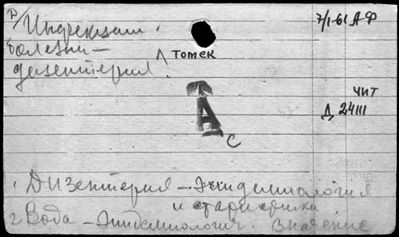 Инфекцион.
болезни —
дизентерия.
Томск
7/I-61 АФ
ЧИТ
Д 24111
А
с
1. Дизентерия — Эпидемиология
и
2. Вода — Эпидемиологич. значение